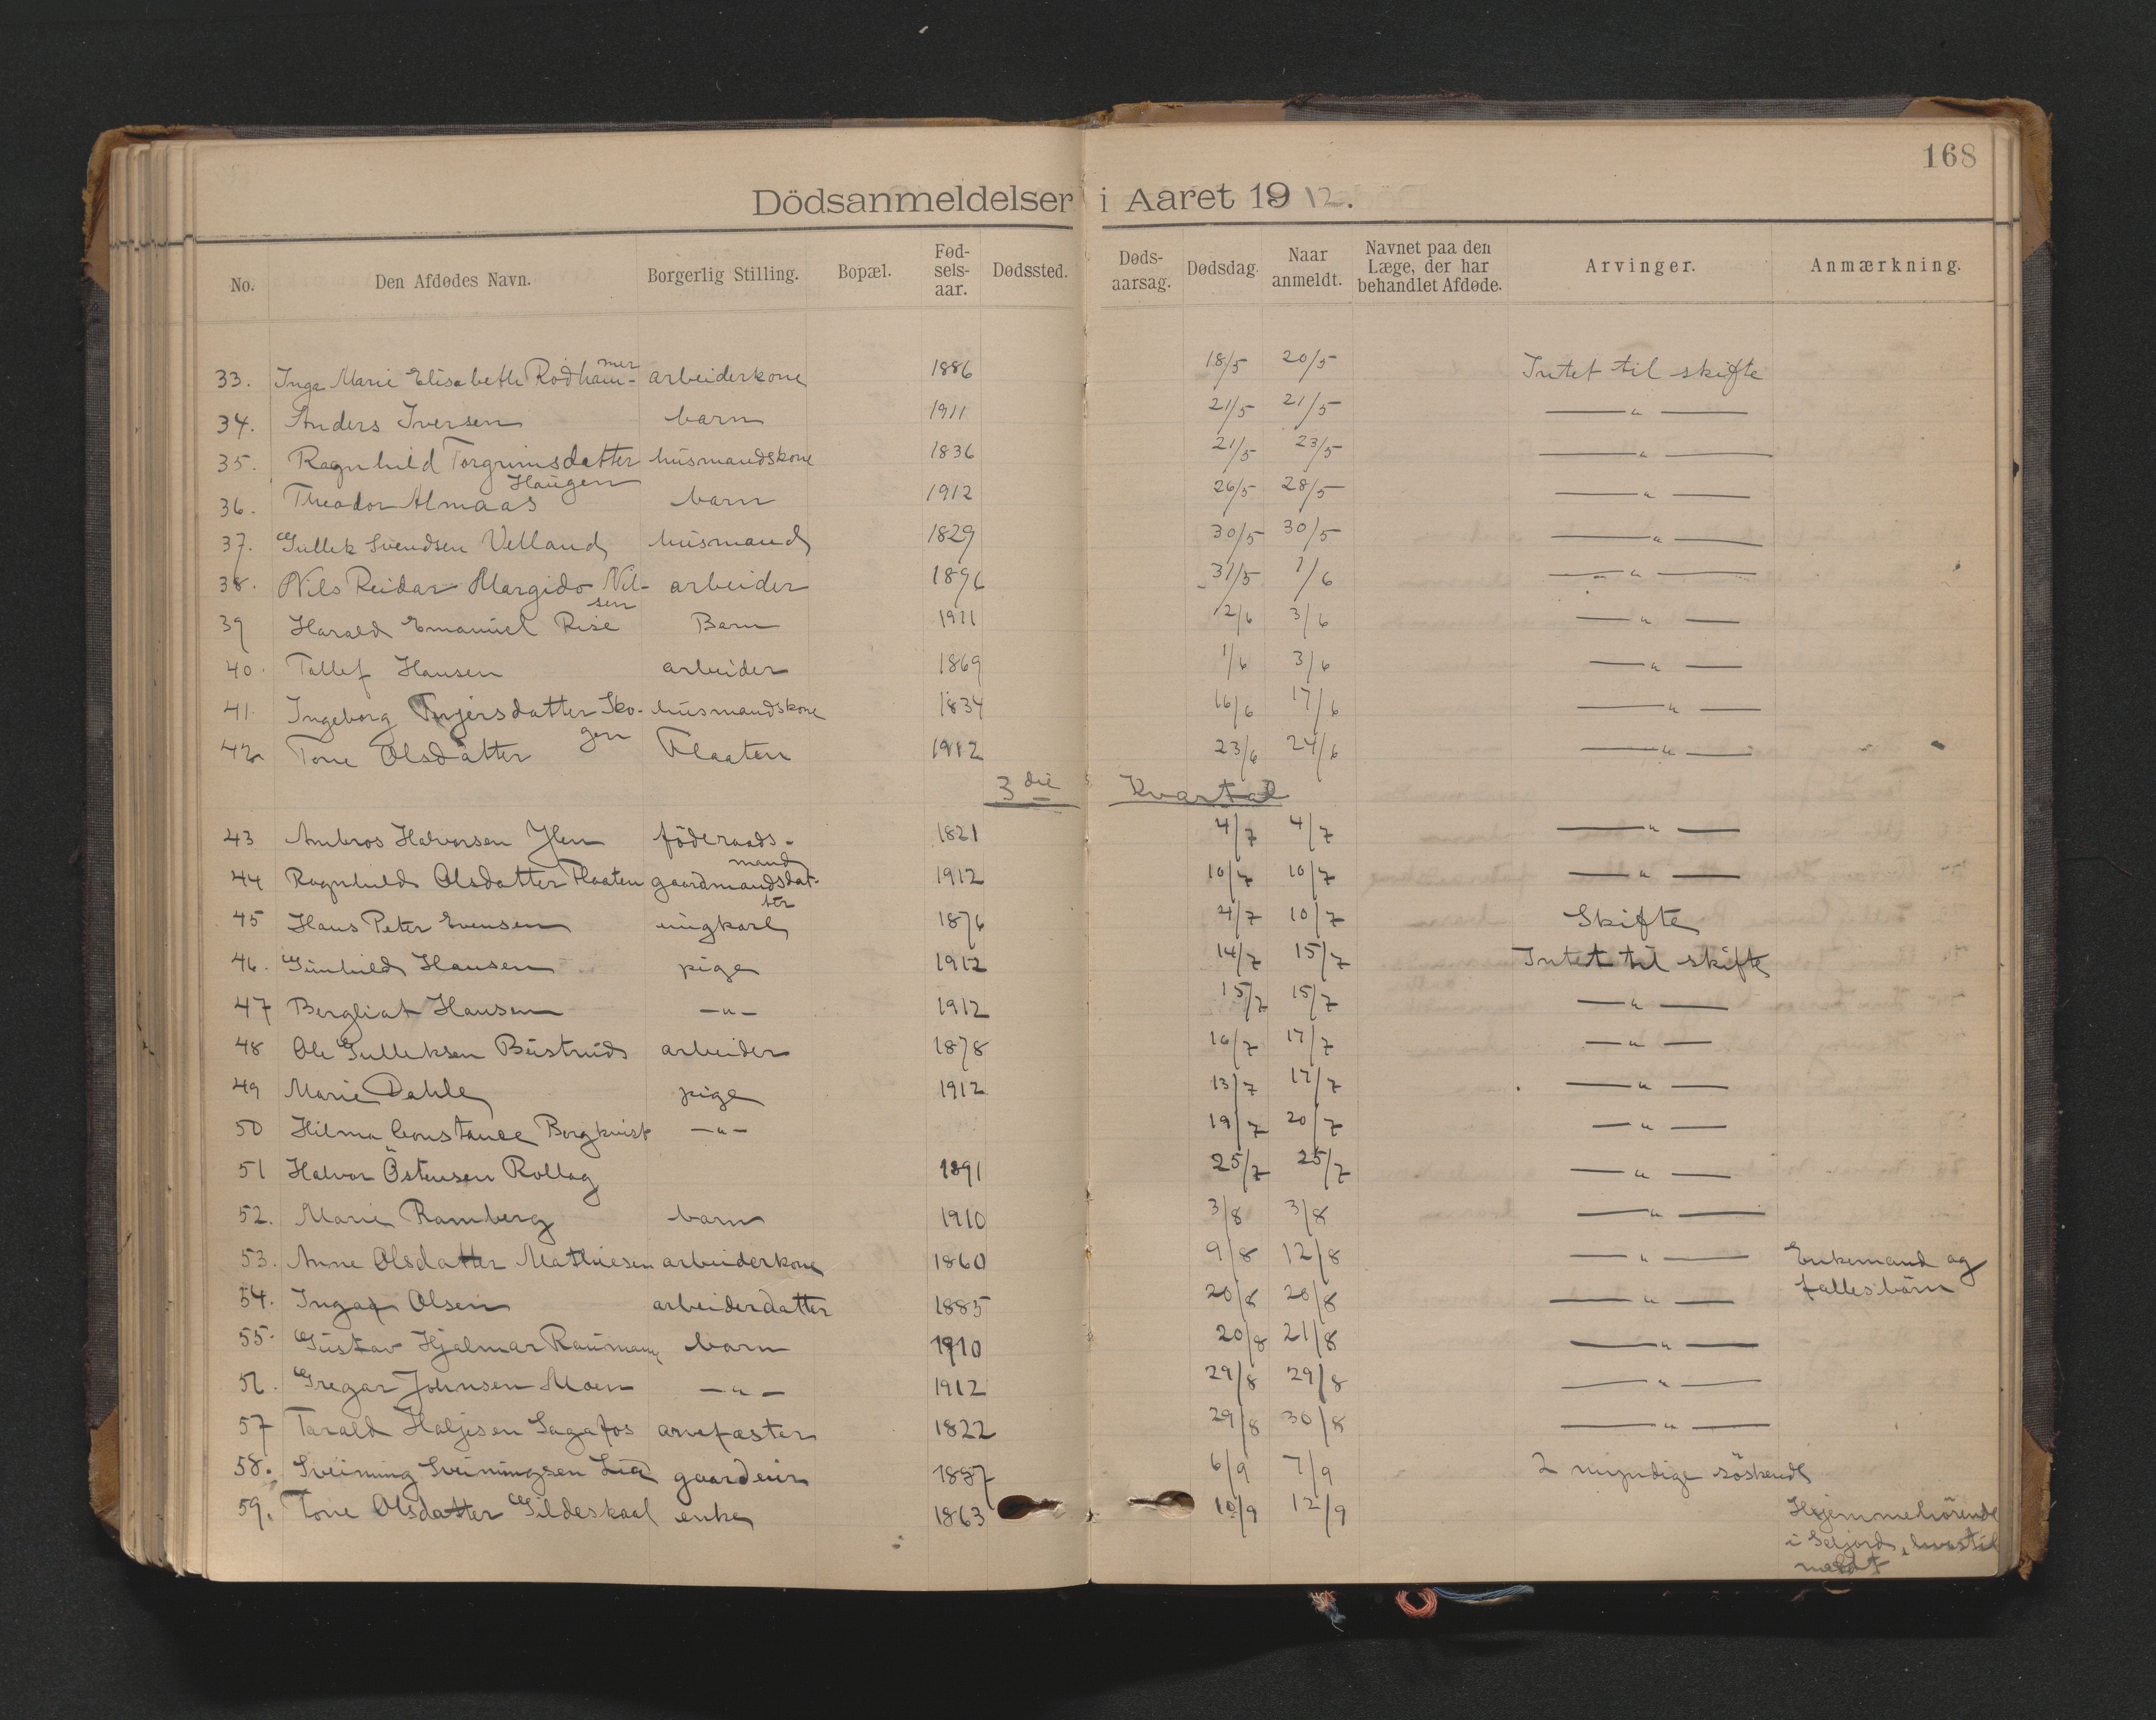 168
Dödsanmeldelser i Aaret 1912.
No. Den Afdødes Navn. Borgerlig Stilling. Bopæl. Fød-sels-aar. Dødssted. Døds-aarsag. Dødsdag. Naar anmeldt. Navnet paa den Læge, der har behandlet Afdøde. Arvinger. Anmærkning.
33. Inga Marie Elisabeth Rödham-mer arbeiderkone 1886 18/5 20/5 Intet til skifte
34. Anders Iversen barn 1911 21/5 21/5 —"—
35. Ragnhild Torgrimsdatter Haugen husmandskone 1836 21/5 23/5 —"—
36. Theodor Almaas barn 1912 26/5 28/5 —"—
37. Gullek Svendsen Velland husmand 1829 30/5 30/5 —"—
38. Nils Reidar Margido Nil-sen arbeider 1896 31/5 1/6 —"—
39 Harald Emanuel Rise Barn 1911 2/6 3/6 —"—
40. Tallef Hansen arbeider 1869 1/6 3/6 —"—
41. Ingeborg Sko-gen husmandskone 1834 16/6 17/6 —"—
42 Tone Olsdatter Flaaten 1912 23/6 24/6 —"—
3die Kvartal
43 Ambros Halvorsen föderaads-mand 1821 4/7 4/7 —"—
44 Ragnhild Olsdatter Flaaten gaardmandsdat-ter 1912 10/7 10/7 —"—
45 Hans Peter Evensen ungkarl 1876 4/7 10/7 Skifte
46. Gunhild Hansen pige 1912 14/7 15/7 Intet til skifte
47 Bergliot Hansen —"— 1912 15/7 15/7 —"—
48 Ole Gulleksen Bustrud arbeider 1878 16/7 17/7 —"—
49 Marie Dahle pige 1912 13/7 17/7 —"—
50 Hilma Constance Borgkvist —"— 19/7 20/7 —"—
51 Halvor Östensen Rollag 1891 25/7 25/7 —"—
52. Marie Ramberg barn 1910 3/8 3/8 —"—
53. Anne Olsdatter Mathiesen arbeiderkone 1860 9/8 12/8 —"— Enkemand og fællesbörn
54. Ingaf Olsen arbeiderdatter 1885 20/8 20/8 —"—
55. Gustav Hjalmar barn 1910 20/8 21/8 —"—
56. Gregar Johnsen Moen —"— 1912 29/8 29/8 —"—
57 Tarald Haljesen Sagafos arvefæster 1822 29/8 30/8 —"—
58. Sveinung Sveinungsen Lia gaardeier 6/9 7/9 2 myndige söskend
59. Tone Olsdatter Gildeskaal enke 1863 10/9 12/9 Hjemmehörende
i Seljord, hvortil
meldt